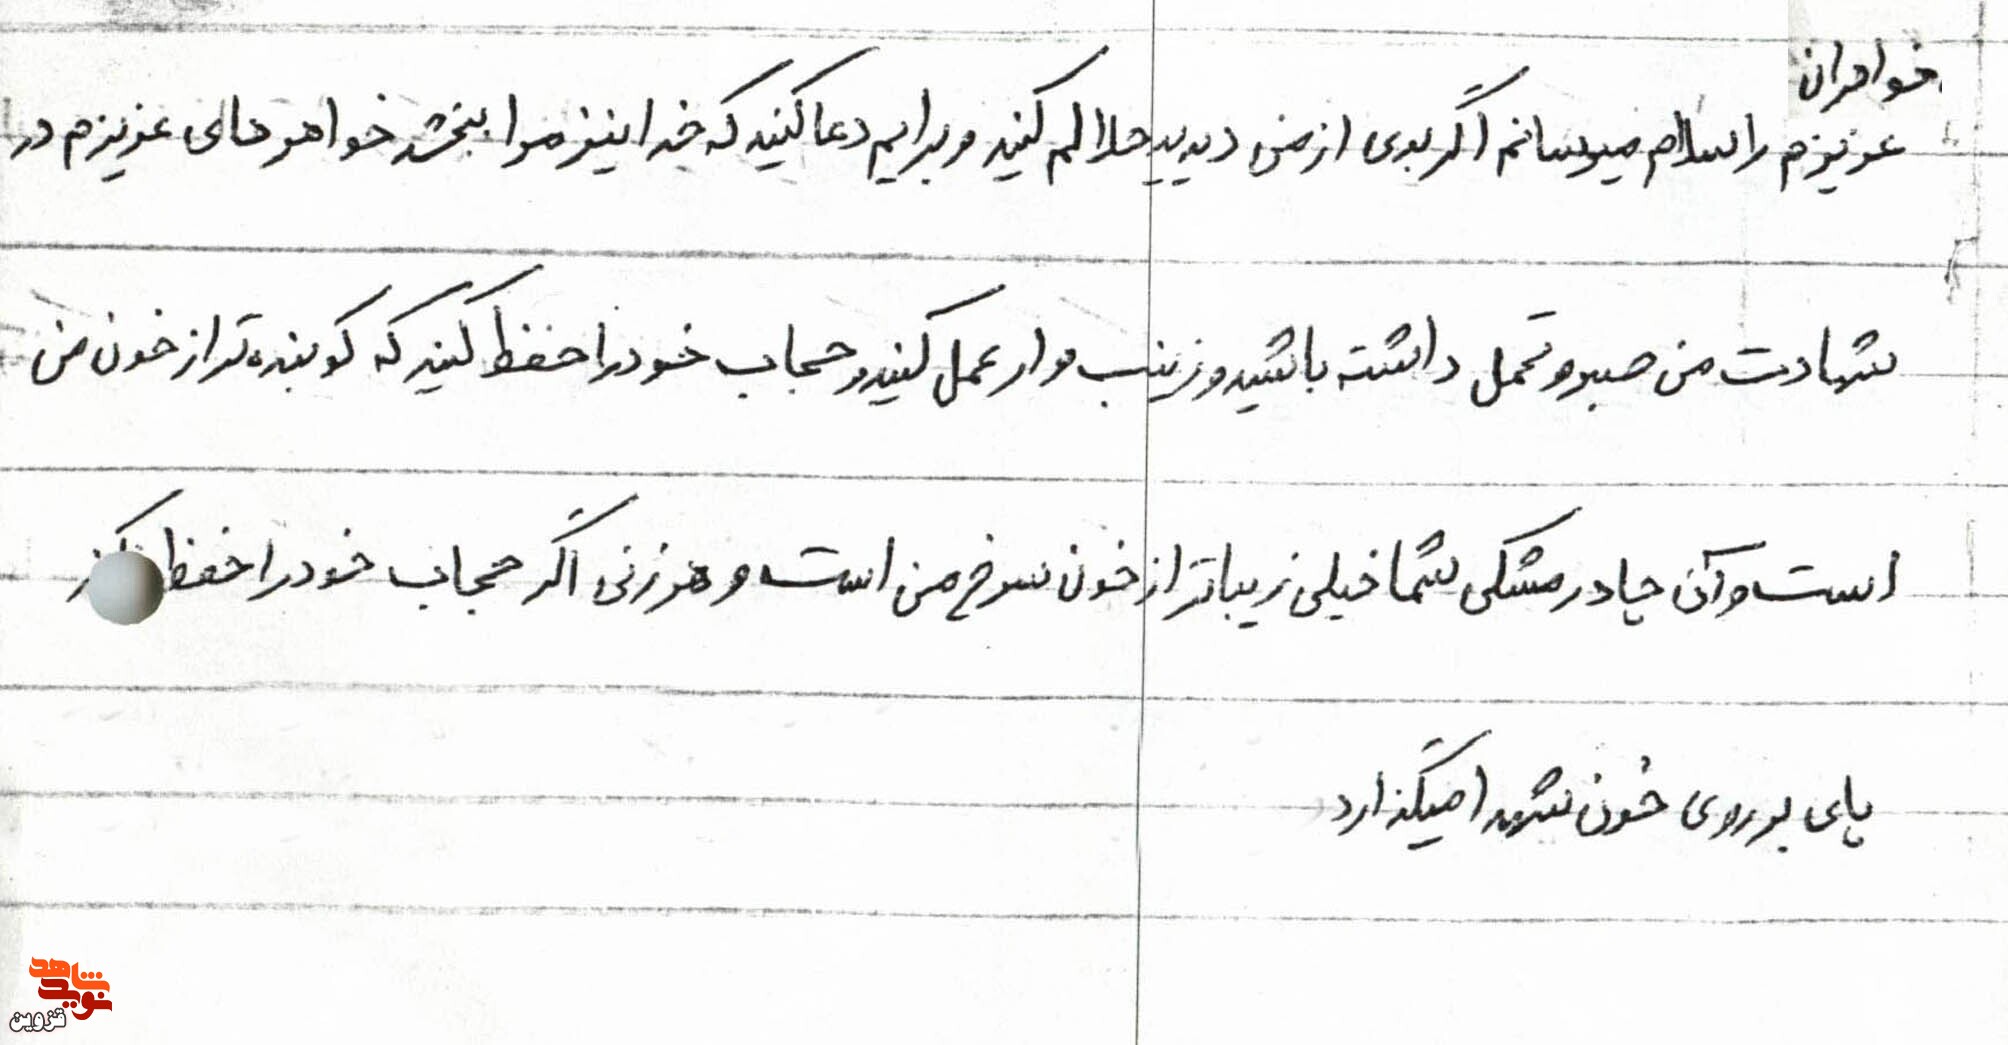 خواهران
عزیزم را سلام میرسانم اگر بدی از من دیدید حلالم کنید و برایم دعا کنید که خدا نیز مرا ببخشد خواهرهای عزیزم در
شهادت من صبر و تحمل داشته باشید و زینب وار عمل کنید و حجاب خود را حفظ کنید که کوبنده تر از خون من
است و آن چادر مشکی شما خیلی زیباتر از خون سرخ من است و هر زنی اگر حجاب خود را حفظ
پای بر روی خون شهدا میگذارد
نوید شاهد
قزوین